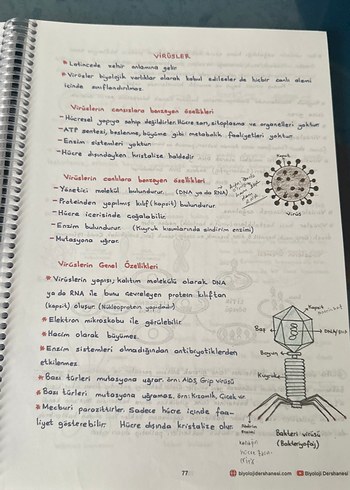 VİRÜSLER
* Latincede zehir anlamına gelir.
* Virüsler biyolojik varlıklar olarak kabul edilseler de hiçbir canlı alemi
içinde sınıflandırılmaz.
Virüslerin cansızlara benzeyen özellikleri
- Hücresel yapıya sahip değildirler. Hücre zarı, sitoplazma ve organelleri yoktur.
- ATP sentezi, beslenme, büyüme gibi metabolik faaliyetleri yoktur.
- Enzim sistemleri yoktur.
- Hücre dışındayken kristalize haldedir.
Virüslerin canlılara benzeyen özellikleri
- Yönetici molekül bulundurur. (DNA ya da RNA)
- Proteinden yapılmış kılıf (kapsit) bulundurur.
- Hücre içerisinde çoğalabilir.
- Enzim bulundurur. (Kuyruk kısımlarında sindirim enzimi)
- Mutasyona uğrar.
Kapsit
Virüs
Virüslerin Genel Özellikleri
* Virüslerin yapısı; kalıtım molekülü olarak DNA
ya da RNA ile bunu çevreleyen protein kılıftan
(kapsit) oluşur. (Nükleoprotein yapıdadır)
* Elektron mikroskobu ile görülebilir.
* Hacim olarak büyümez.
* Enzim sistemleri olmadığından antibiyotiklerden
etkilenmez.
* Bazı türleri mutasyona uğrar. örn: AIDS, Grip virüsü
* Bazı türleri mutasyona uğramaz. örn: Kızamık, Çiçek
* Mecburi parazittirler. Sadece hücre içinde faa-
liyet gösterebilir. Hücre dışında kristalize olur.
Kapsit
Baş
DNA/
Boyun
Kuyruk
Bakteri virüsü
(Bakteriyofaj)
77
biyolojidershanesi.com
Biyoloji Dershanesi